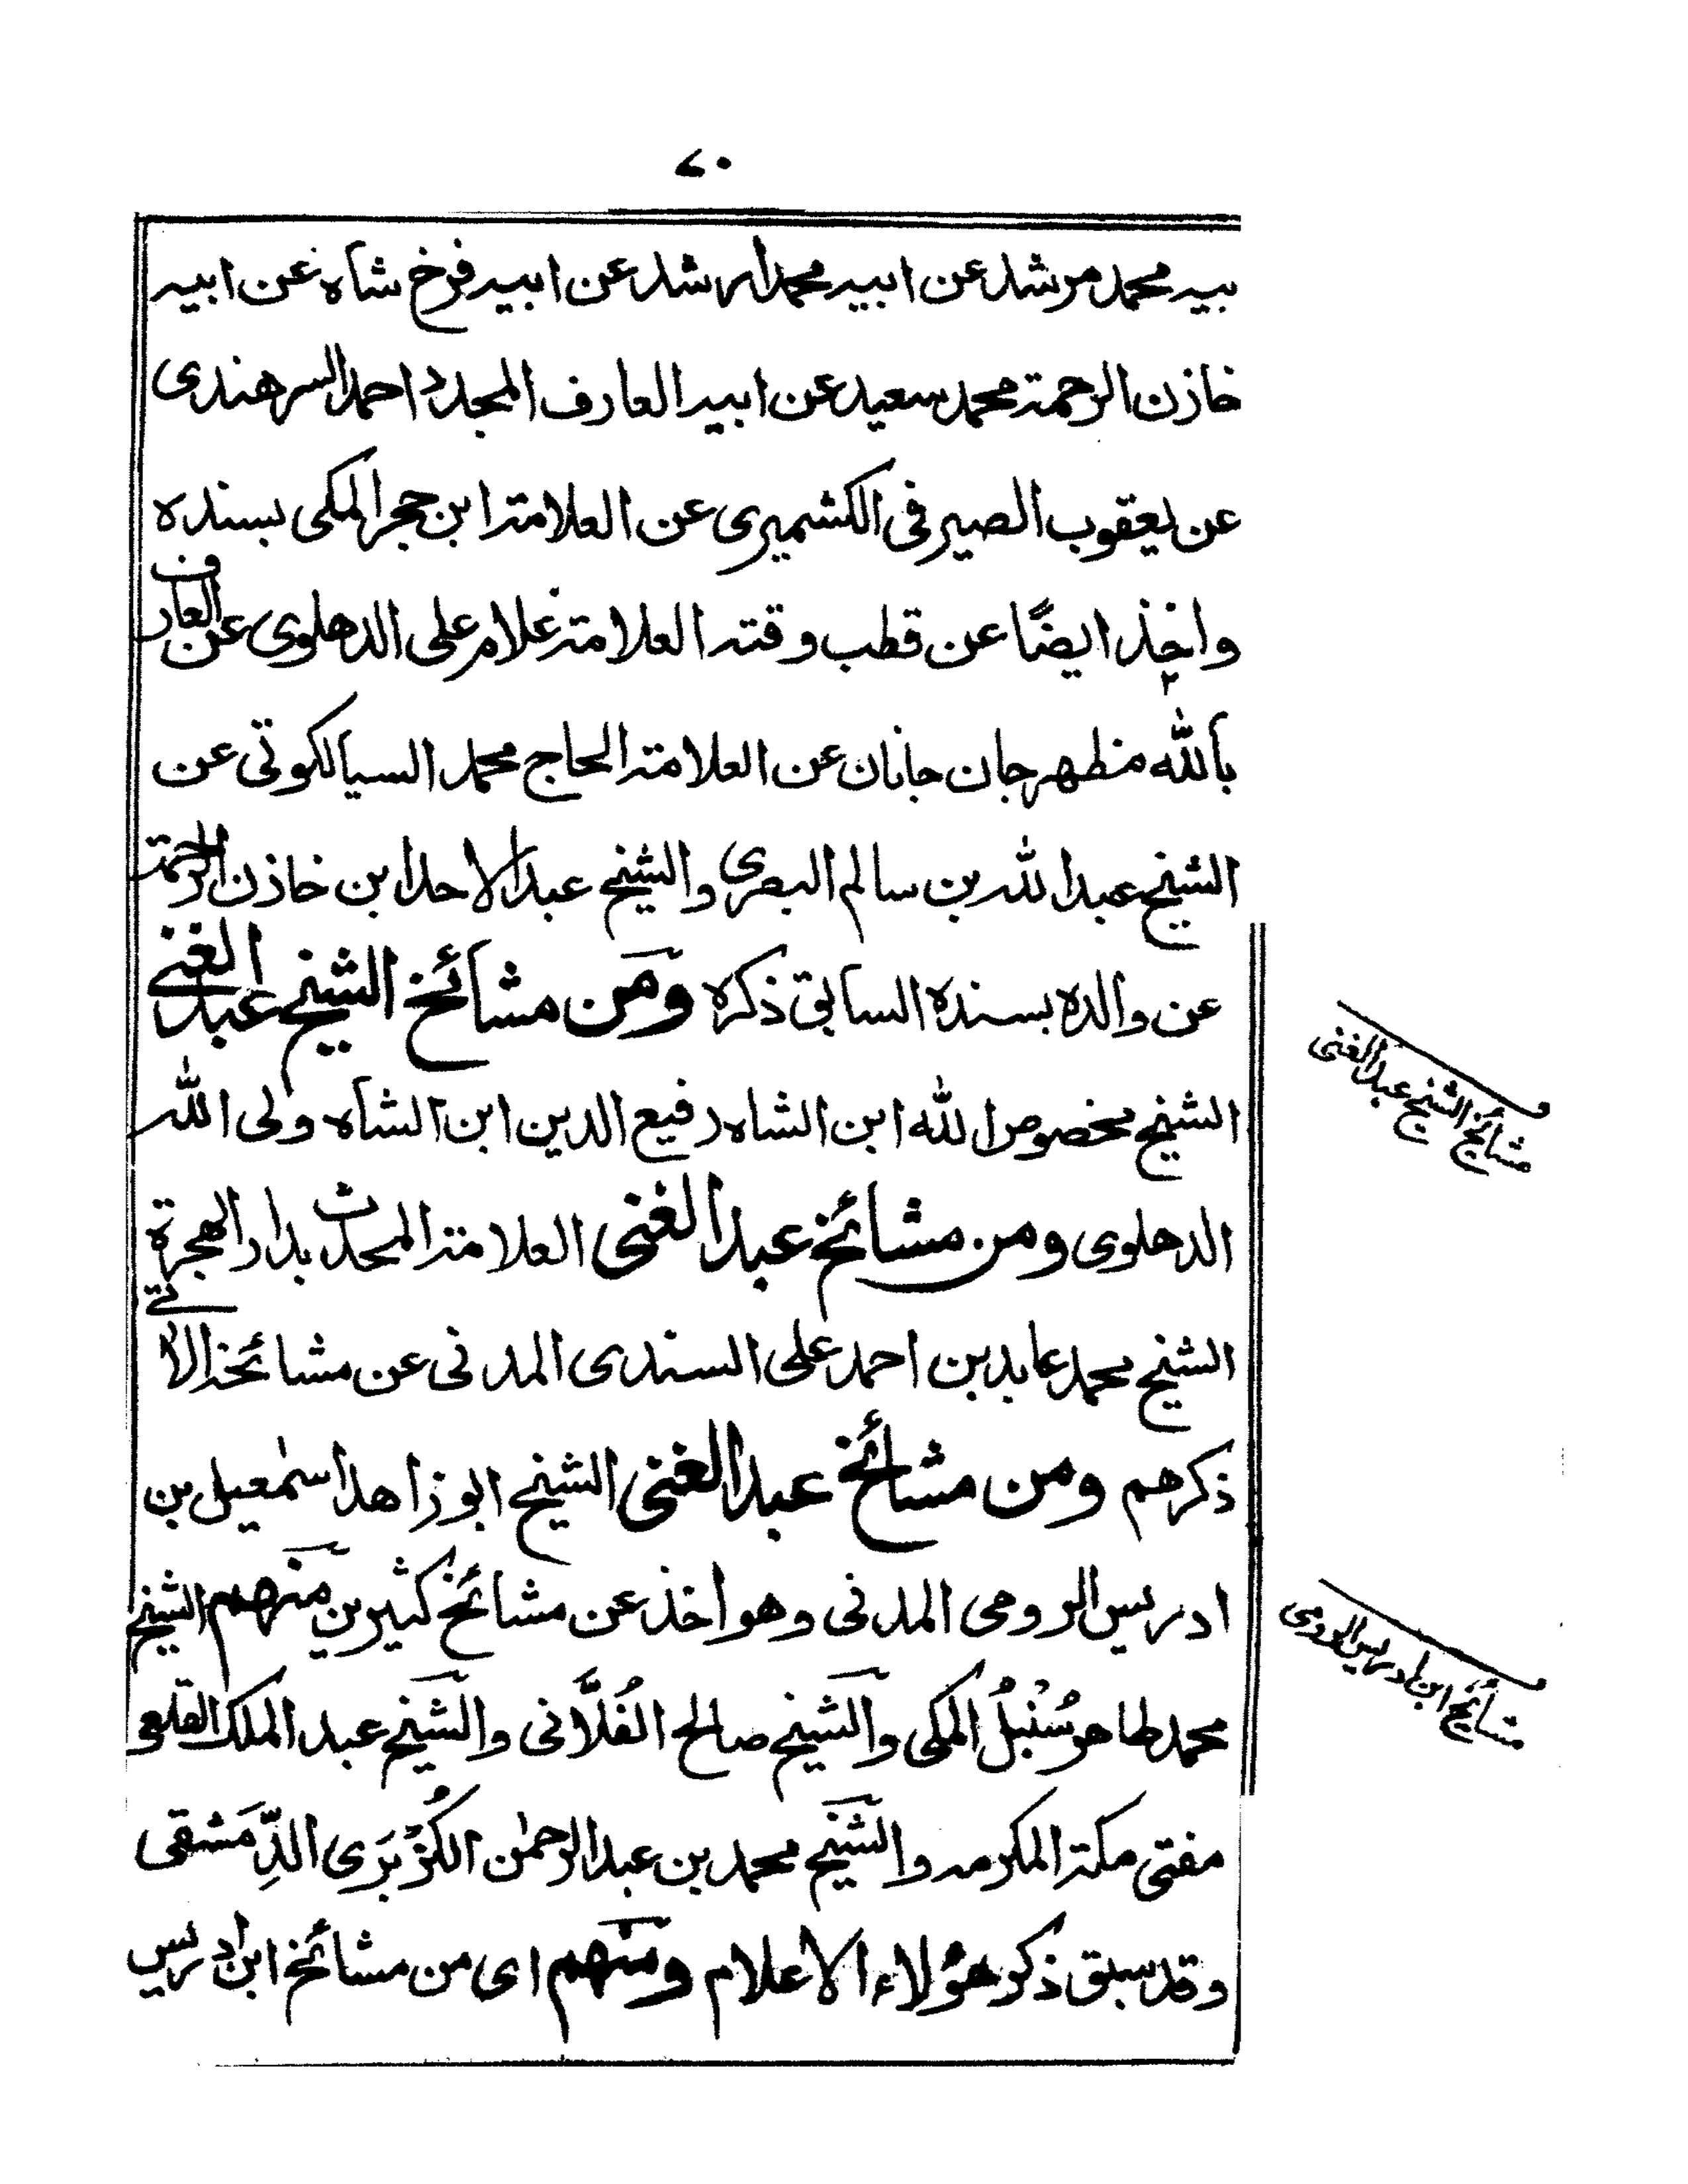 ٧٠
بيه محمد مرشد عن ابيه محمد ارشد عن ابيه فرخ شاه عن ابيه
خازن الرحمة محمد سعيد عن ابيه العارف المجدد احمد السرهندى
عن يعقوب الصيرفى الكشميرى عن العلامة ابن حجر المكى بسنده
واخذ ايضًا عن قطب وقته العلامة غلام على الدهلوى عن العارف
بالله مظهر جان جانان عن العلامة الحاج محمد السيالكوتى عن
الشيخ عبد الله بن سالم البصرى والشيخ عبد الاحد ابن خازن الرحمة
عن والده بسنده السابق ذكره ومن مشائخ الشيخ عبد الغنى
الشيخ مخصوص الله ابن الشاه رفيع الدين ابن الشاه ولى الله
الدهلوى ومن مشائخ عبد الغنى العلامة المحدث بدار الهجرة
الشيخ محمد عابد بن احمد على السندى المدنى عن مشائخه الاتى
ذكرهم ومن مشائخ عبد الغنى الشيخ ابو زاهد اسمٰعيل بن
ادريس الرومى المدنى وهو اخذ عن مشائخ كثيرين منهم الشيخ
محمد طاهر سُنْبُلُ المكى والشيخ صالح الفُلَّانى والشيخ عبد الملك القلعى
مفتى مكة المكرمه والشيخ محمد بن عبد الرحمٰن الكُزْبَرى الدِّمَشقى
وقد سبق ذكر هؤلاء الاعلام ومنهم اى من مشائخ ابن ادريس
مشائخ الشيخ عبد الغنى
مشائخ ابن ادريس الرومى